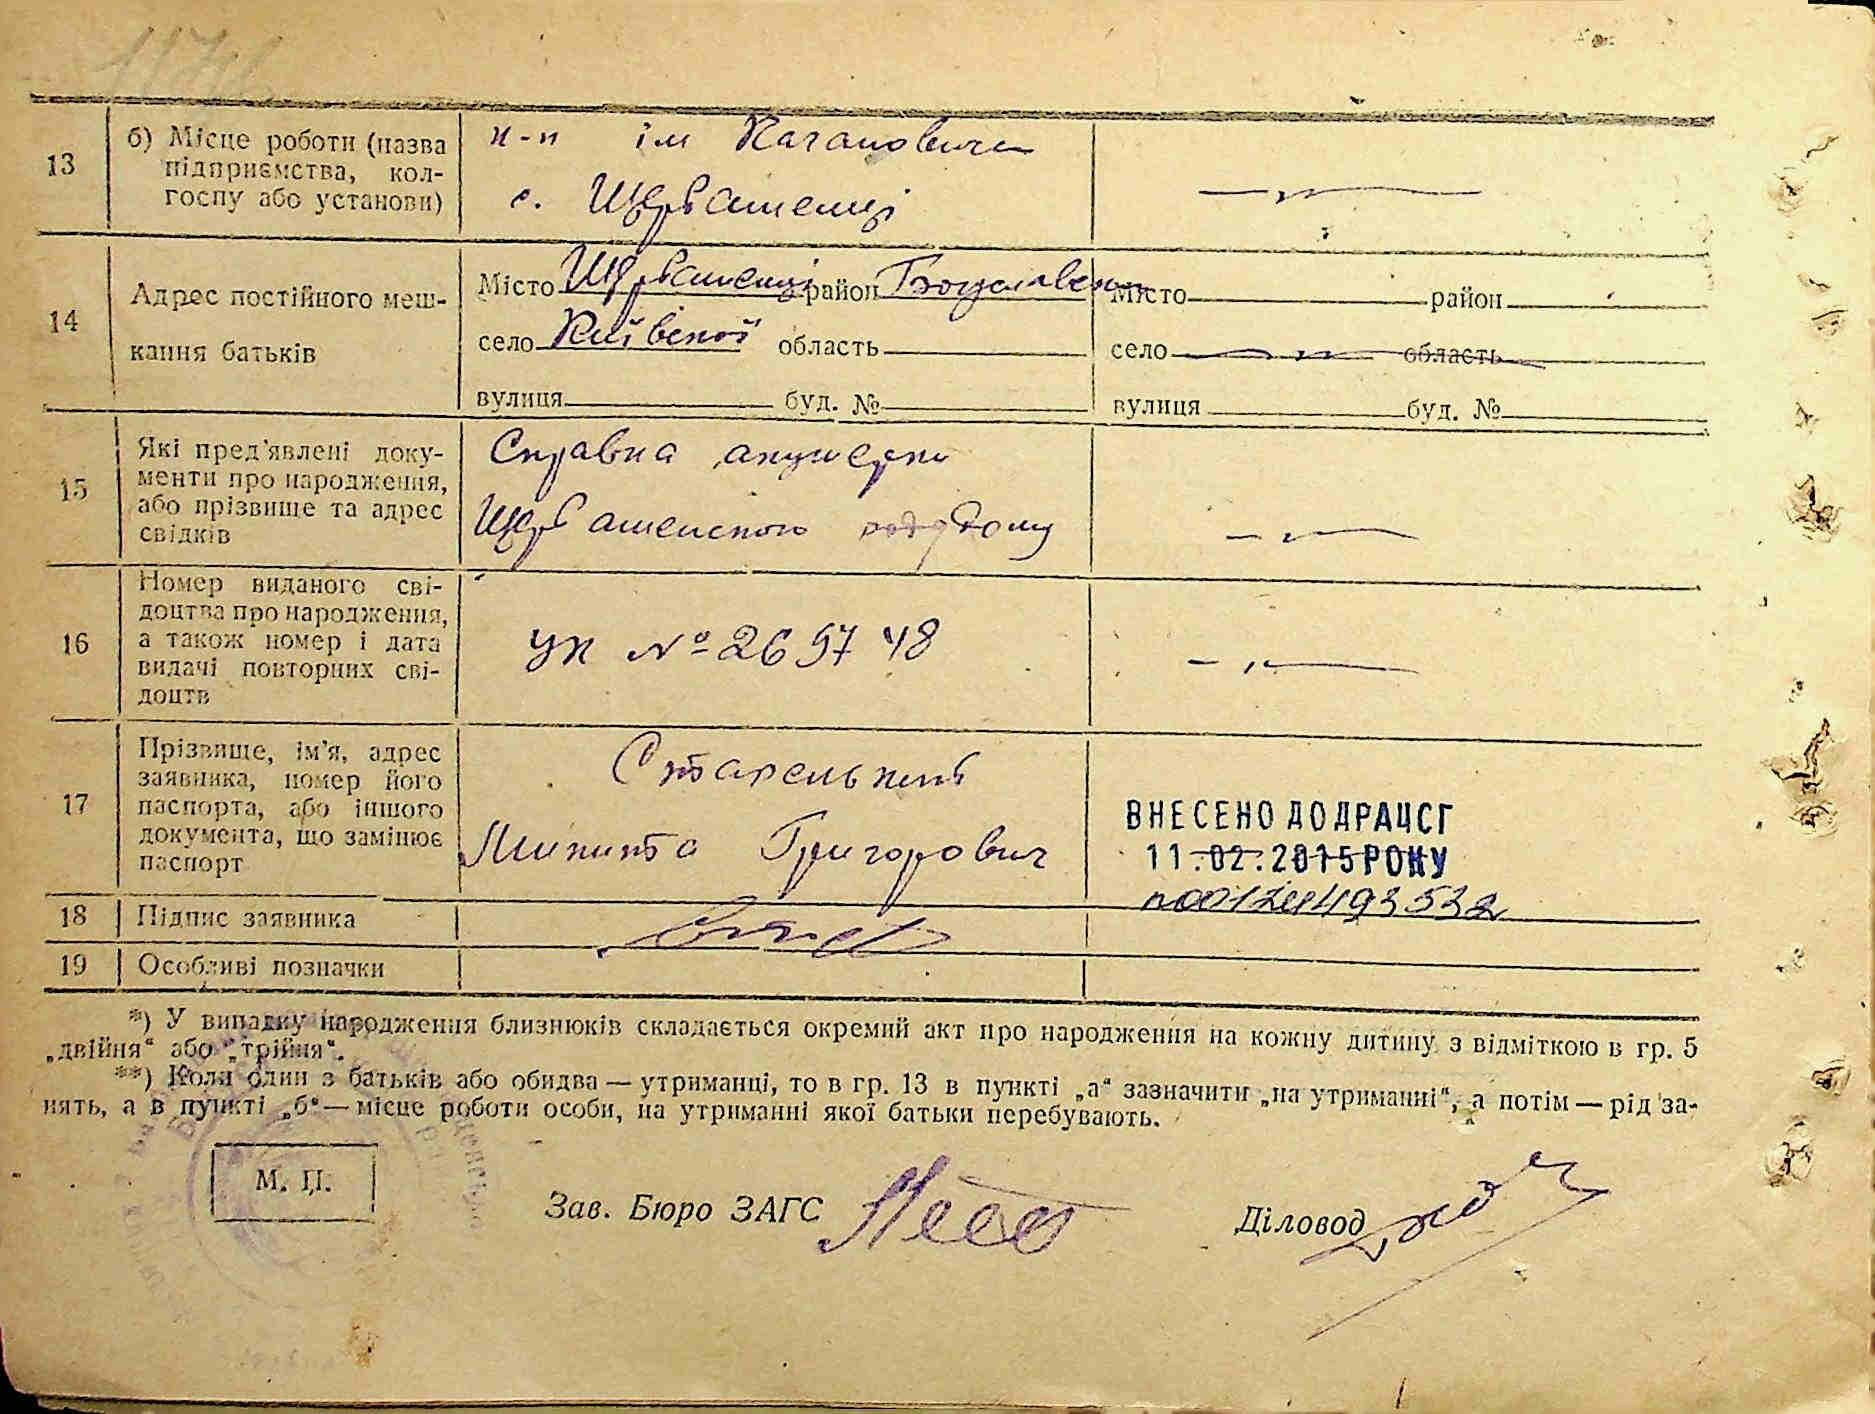 13
б) Місце роботи (назва
підприємства, кол-
госпу або установи)
к-п ім Кагановича
с. Щербашенці
14
Адрес постійного меш-
кання батьків
Місто Щербашенці район Богуславськ
село Київської область
вулиця буд. №
Місто район
село область
вулиця буд. №
15
Які пред'явлені доку-
менти про народження,
або прізвище та адрес
свідків
Справка акушерки
Щербашенского роддому
16
Номер виданого сві-
доцтва про народження,
а також номер і дата
видачі повторних сві-
доцтв
УК № 269748
17
Прізвище, ім'я, адрес
заявника, номер його
паспорта, або іншого
документа, що замінює
паспорт
Старенький
Микита Григорович
ВНЕСЕНО ДО ДРАЦСГ
11.02.2015 РОКУ
n00124493532
18 Підпис заявника
19 Особливі позначки
*) У випадку народження близнюків складається окремий акт про народження на кожну дитину з відміткою в гр. 5
„двійня“ або „трійня“.
**) Коли один з батьків або обидва — утриманці, то в гр. 13 в пункті „а“ зазначити „на утриманні“, а потім — рід за-
нять, а в пункті „б“ — місце роботи особи, на утриманні якої батьки перебувають.
М. П.
Зав. Бюро ЗАГС
Діловод